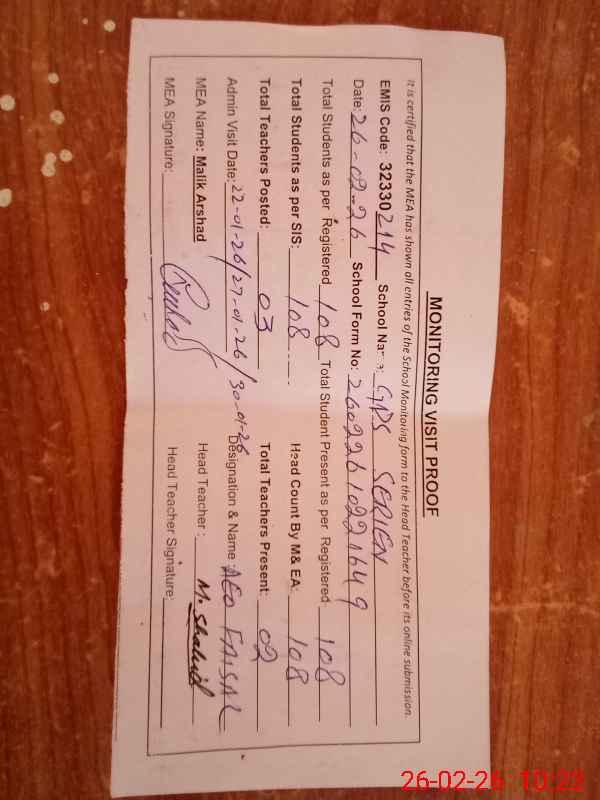 MONITORING VISIT PROOF
It is certified that the MEA has shown all entries of the School Monitoring form to the Head Teacher before its online submission.
EMIS Code: 32330214 School Na GPS SERIEN
Date: 26-02-26 School Form No: 26022610221649
Total Students as per Registered 108 Total Student Present as per Registered 108
Total Students as per SIS: 108 Head Count By M& EA: 108
Total Teachers Posted: 03 Total Teachers Present: 02
Admin Visit Date: 22-01-26/27-01-26/30-01-26 Designation & Name AEO FAISAL
MEA Name: Malik Arshad Head Teacher : M. Shahid
MEA Signature: Head Teacher Signature:
26-02-26 10:23